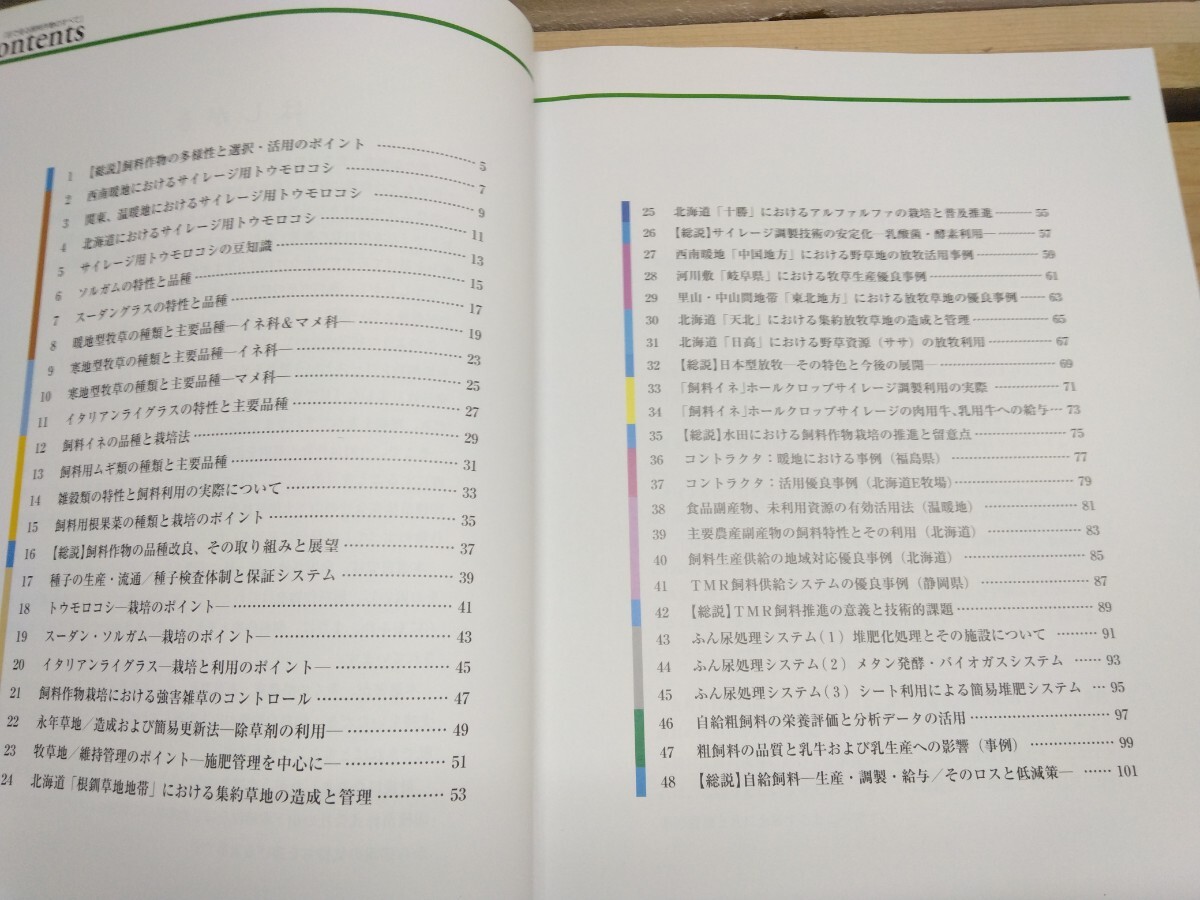 ontents
1 【総説】飼料作物の多様性と選択・活用のポイント 5
2 西南暖地におけるサイレージ用トウモロコシ 7
3 関東、温暖地におけるサイレージ用トウモロコシ 9
4 北海道におけるサイレージ用トウモロコシ 11
5 サイレージ用トウモロコシの豆知識 13
6 ソルガムの特性と品種 15
7 スーダングラスの特性と品種 17
8 暖地型牧草の種類と主要品種―イネ科&マメ科― 19
9 寒地型牧草の種類と主要品種―イネ科― 23
10 寒地型牧草の種類と主要品種―マメ科― 25
11 イタリアンライグラスの特性と主要品種 27
12 飼料イネの品種と栽培法 29
13 飼料用ムギ類の種類と主要品種 31
14 雑穀類の特性と飼料利用の実際について 33
15 飼料用根果菜の種類と栽培のポイント 35
16 【総説】飼料作物の品種改良、その取り組みと展望 37
17 種子の生産・流通/種子検査体制と保証システム 39
18 トウモロコシ―栽培のポイント― 41
19 スーダン・ソルガム―栽培のポイント― 43
20 イタリアンライグラス―栽培と利用のポイント― 45
21 飼料作物栽培における強害雑草のコントロール 47
22 永年草地/造成および簡易更新法―除草剤の利用― 49
23 牧草地/維持管理のポイント―施肥管理を中心に― 51
24 北海道「根釧草地地帯」における集約草地の造成と管理 53
25 北海道「十勝」におけるアルファルファの栽培と普及推進 55
26 【総説】サイレージ調製技術の安定化―乳酸菌・酵素利用― 57
27 西南暖地「中国地方」における野草地の放牧活用事例 59
28 河川敷「岐阜県」における牧草生産優良事例 61
29 里山・中山間地帯「東北地方」における放牧草地の優良事例 63
30 北海道「天北」における集約放牧草地の造成と管理 65
31 北海道「日高」における野草資源(ササ)の放牧利用 67
32 【総説】日本型放牧―その特色と今後の展開― 69
33 「飼料イネ」ホールクロップサイレージ調製利用の実際 71
34 「飼料イネ」ホールクロップサイレージの肉用牛、乳用牛への給与 73
35 【総説】水田における飼料作物栽培の推進と留意点 75
36 コントラクタ:暖地における事例(福島県) 77
37 コントラクタ:活用優良事例(北海道E牧場) 79
38 食品副産物、未利用資源の有効活用法(温暖地) 81
39 主要農産副産物の飼料特性とその利用(北海道) 83
40 飼料生産供給の地域対応優良事例(北海道) 85
41 TMR飼料供給システムの優良事例(静岡県) 87
42 【総説】TMR飼料推進の意義と技術的課題 89
43 ふん尿処理システム(1)堆肥化処理とその施設について 91
44 ふん尿処理システム(2)メタン発酵・バイオガスシステム 93
45 ふん尿処理システム(3)シート利用による簡易堆肥システム 95
46 自給粗飼料の栄養評価と分析データの活用 97
47 粗飼料の品質と乳牛および乳生産への影響(事例) 99
48 【総説】自給飼料―生産・調製・給与/そのロスと低減策― 101